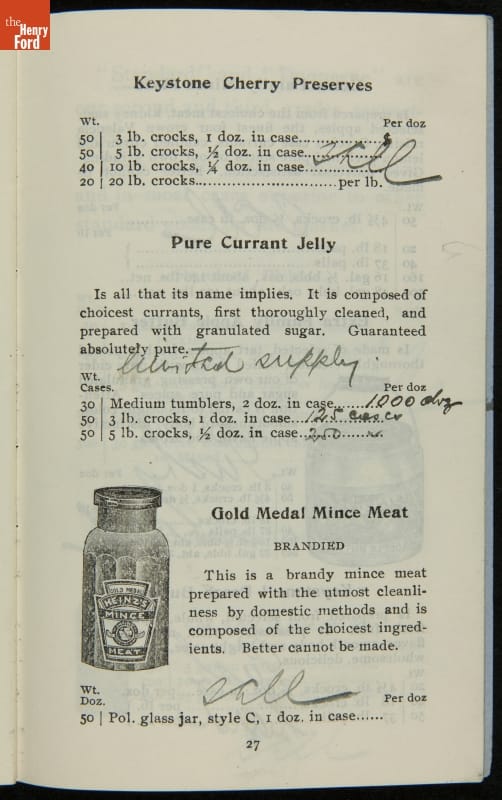 the
Henry
Ford
Keystone Cherry Preserves
Wt. Per doz
50 | 3 lb. crocks, 1 doz. in case.................$
50 | 5 lb. crocks, ½ doz. in case...
40 | 10 lb. crocks, ¼ doz. in case.................
20 | 20 lb. crocks.................................per lb.
Pure Currant Jelly
Is all that its name implies. It is composed of
choicest currants, first thoroughly cleaned, and
prepared with granulated sugar. Guaranteed
absolutely pure.
limited supply
Wt.
Cases. Per doz
30 | Medium tumblers, 2 doz. in case......1000 doz
50 | 3 lb. crocks, 1 doz. in case...125 cases
50 | 5 lb. crocks, ½ doz. in case...250
Gold Medal Mince Meat
BRANDIED
This is a brandy mince meat
prepared with the utmost cleanli-
ness by domestic methods and is
composed of the choicest ingred-
ients. Better cannot be made.
GOLD MEDAL
HEINZ'S
MINCE
MEAT
Wt.
Doz. Per doz
50 | Pol. glass jar, style C, 1 doz. in case......
27